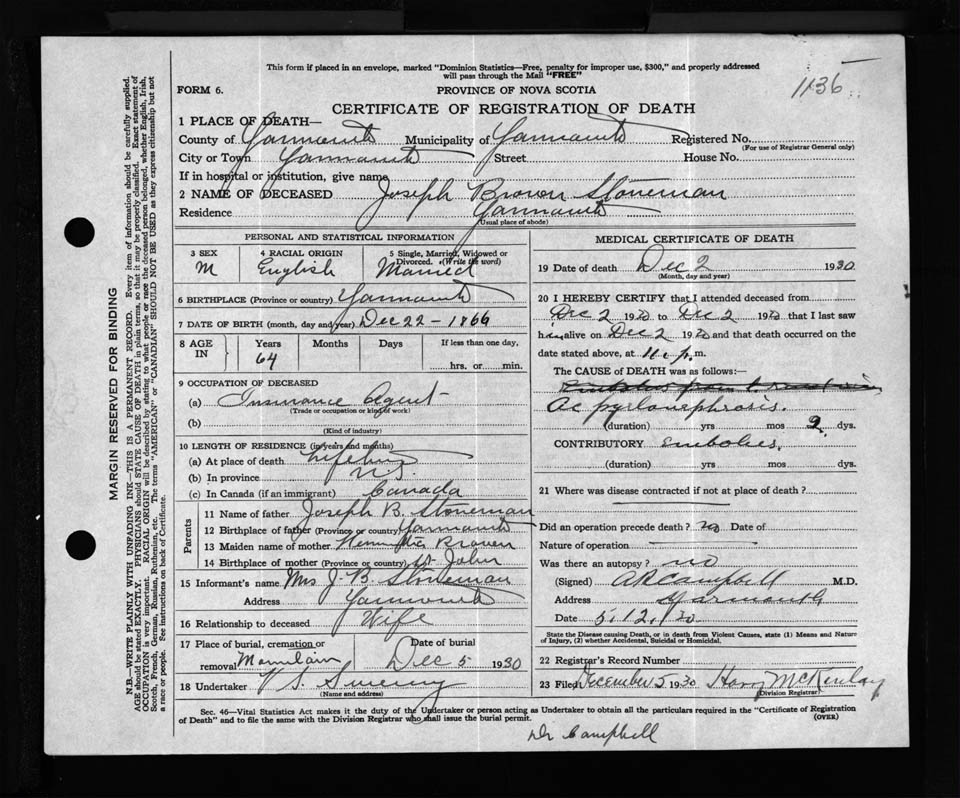 This form if placed in an envelope, marked "Dominion Statistics—Free, penalty for improper use, $300," and properly addressed
will pass through the Mail "FREE"
1136
FORM 6.
PROVINCE OF NOVA SCOTIA
CERTIFICATE OF REGISTRATION OF DEATH
1 PLACE OF DEATH—
County of Yarmouth Municipality of Yarmouth Registered No.
(For use of Registrar General only)
City or Town Yarmouth Street House No.
If in hospital or institution, give name
2 NAME OF DECEASED Joseph Brown Stoneman
Residence Yarmouth
(Usual place of abode)
PERSONAL AND STATISTICAL INFORMATION
3 SEX 4 RACIAL ORIGIN 5 Single, Married, Widowed or
Divorced. (Write the word)
M English Married
6 BIRTHPLACE (Province or country) Yarmouth
7 DATE OF BIRTH (month, day and year) Dec 22 - 1866
8 AGE IN Years Months Days If less than one day,
64 hrs. or min.
9 OCCUPATION OF DECEASED
(a) Insurance Agent
(Trade or occupation or kind of work)
(b)
(Kind of industry)
10 LENGTH OF RESIDENCE (in years and months)
(a) At place of death Lifetime
(b) In province N.S.
(c) In Canada (if an immigrant) Canada
Parents
11 Name of father Joseph B. Stoneman
12 Birthplace of father (Province or country) Yarmouth
13 Maiden name of mother Brown
14 Birthplace of mother (Province or country) St John
15 Informant's name Mrs J. B. Stoneman
Address Yarmouth
16 Relationship to deceased Wife
17 Place of burial, cremation or Date of burial
removal Mountain Dec 5 1930
18 Undertaker V S. Sweeny
(Name and address)
MEDICAL CERTIFICATE OF DEATH
19 Date of death Dec 2 1930
(Month, day and year)
20 I HEREBY CERTIFY that I attended deceased from
Dec 2 1930 to Dec 2 1930 that I last saw
him alive on Dec 2 1930 and that death occurred on the
date stated above, at 11 p.m.
The CAUSE of DEATH was as follows:—
Ac pyelonephrosis.
(duration) yrs mos 2 dys.
CONTRIBUTORY Embolus,
(duration) yrs mos dys.
21 Where was disease contracted if not at place of death?
Did an operation precede death? no Date of
Nature of operation
Was there an autopsy? no
(Signed) A R Campbell M.D.
Address Yarmouth
Date 5/12/30
State the Disease causing Death, or in death from Violent Causes, state (1) Means and Nature
of Injury, (2) whether Accidental, Suicidal or Homicidal.
22 Registrar's Record Number
23 Filed December 5 1930 Harry McKinlay
(Division Registrar)
Sec. 46—Vital Statistics Act makes it the duty of the Undertaker or person acting as Undertaker to obtain all the particulars required in the "Certificate of Registration
of Death" and to file the same with the Division Registrar who shall issue the burial permit. (OVER)
Dr Campbell
MARGIN RESERVED FOR BINDING
N.B.—WRITE PLAINLY WITH UNFADING INK—THIS IS A PERMANENT RECORD. Every item of information should be carefully supplied.
AGE should be stated EXACTLY. PHYSICIANS should STATE CAUSE OF DEATH in plain terms, so that it may be properly classified. Exact statement of
OCCUPATION is very important. RACIAL ORIGIN will be described by stating to what people or race the deceased person belonged, whether English, Irish,
Scotch, French, German, Russian, Ruthenian, etc. The terms "AMERICAN" or "CANADIAN" SHOULD NOT BE USED as they express citizenship but not
a race or people. See instructions on back of Certificate.